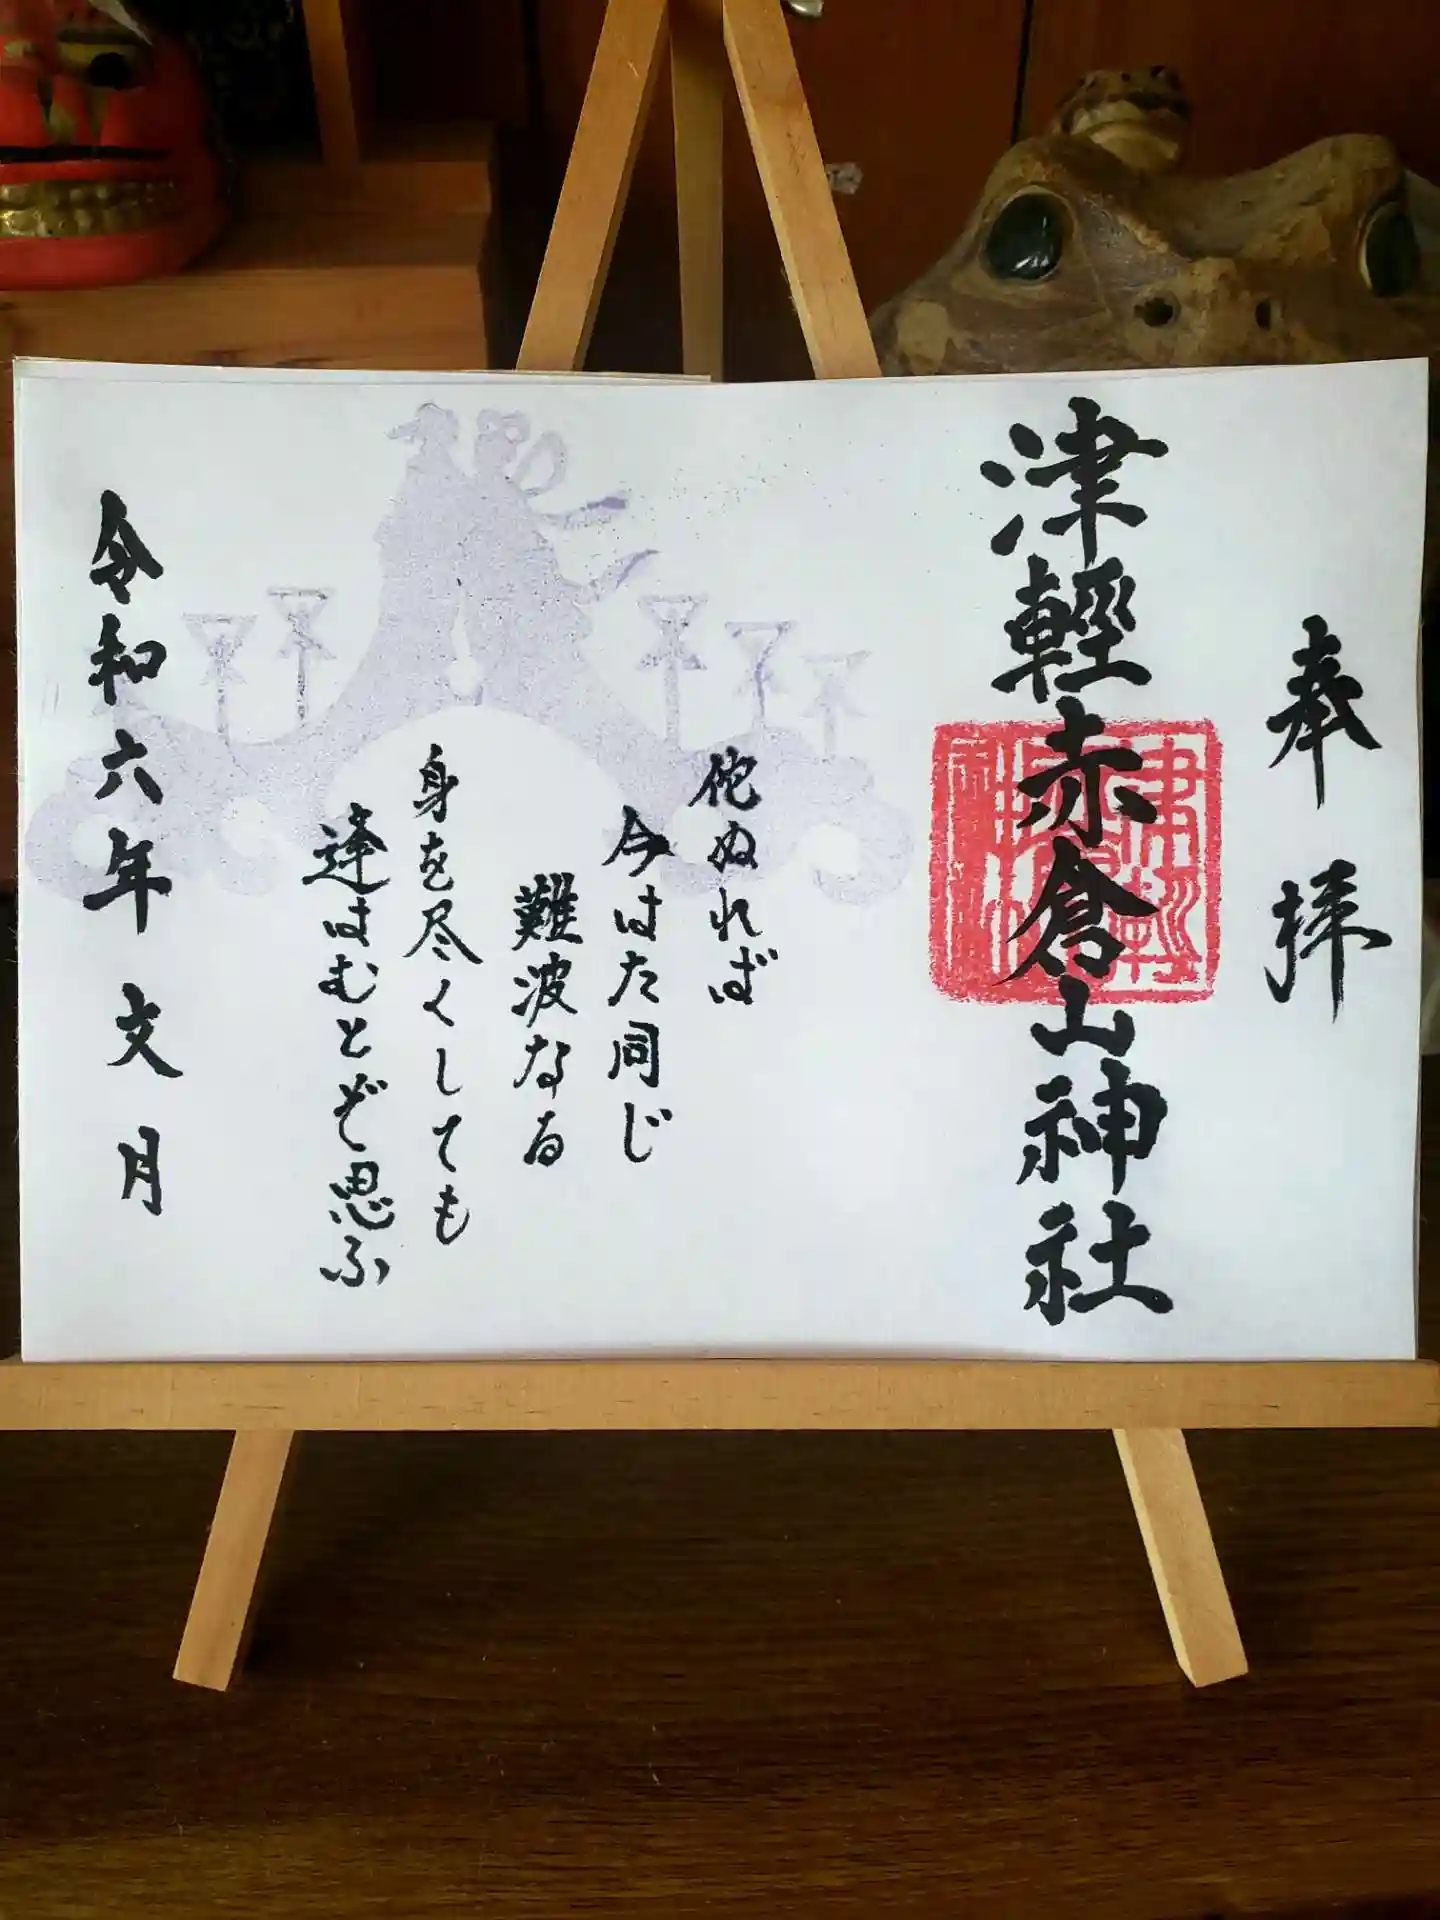 奉拝
津輕赤倉山神社
侘ぬれば
今はた同じ
難波なる
身を尽くしても
逢はむとぞ思ふ
令和六年文月